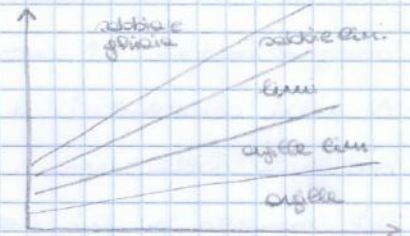 sabbia e
ghiaia
sabbie limi.
limi
argille lim
argille